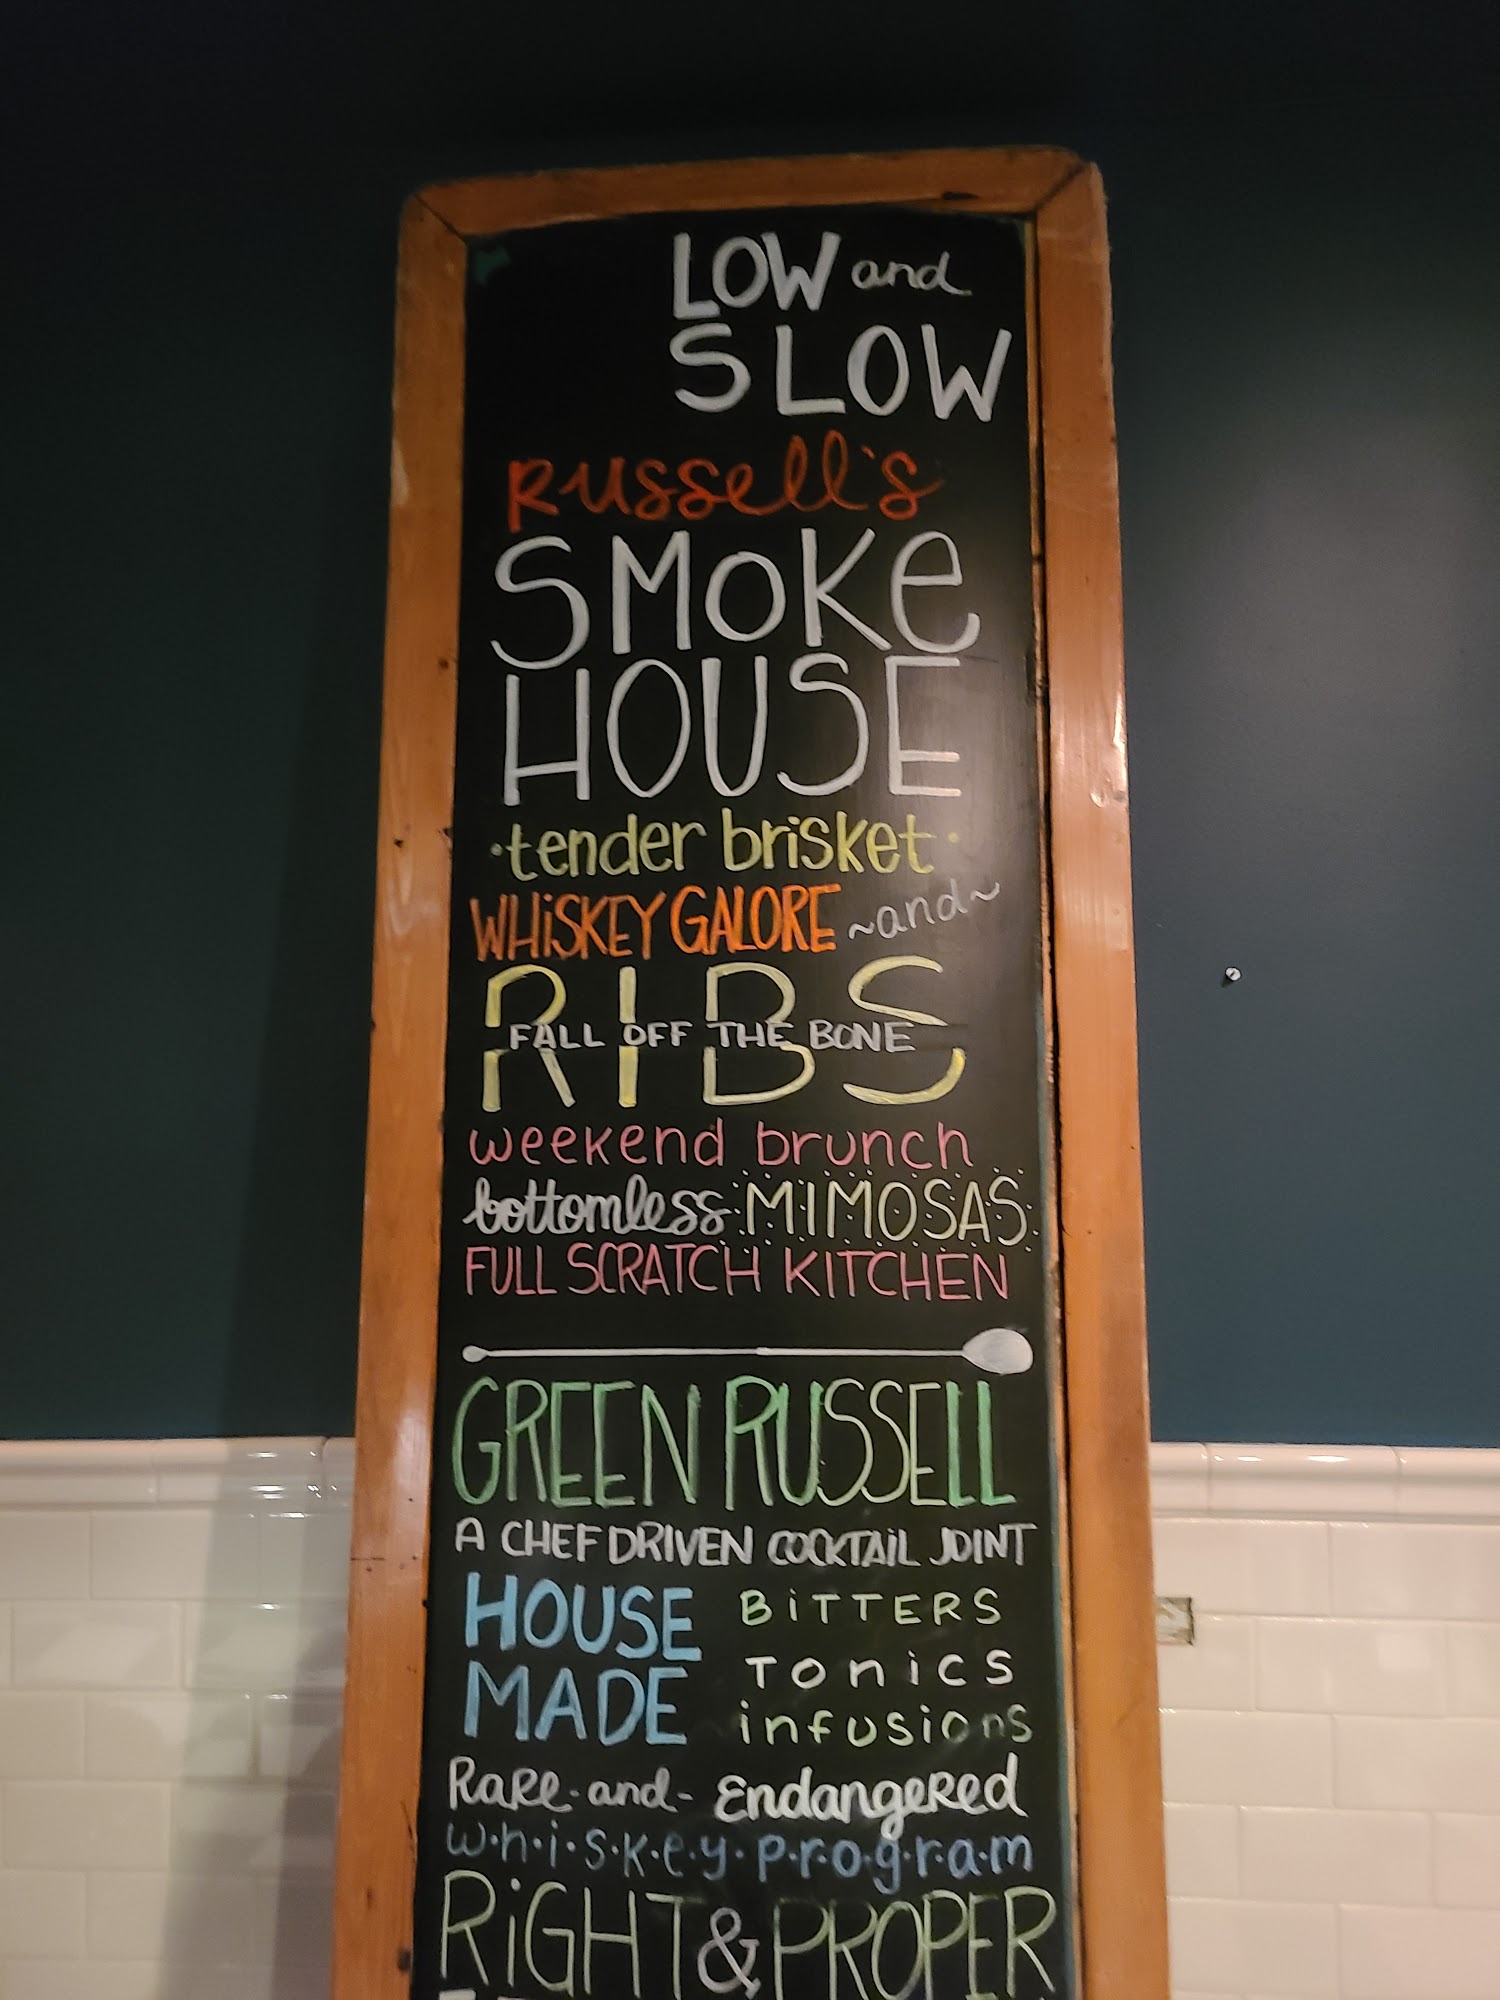 LOW and
SLOW
Russell's
SMOKE
HOUSE
·tender brisket·
WHiSKEY GALORE ~and~
RIBS
FALL OFF THE BONE
weekend brunch
bottomless MIMOSAS
FULL SCRATCH KITCHEN
GREEN RUSSELL
A CHEF DRIVEN COCKTAiL JOINT
HOUSE MADE
BiTTERS
TONiCS
infusions
RaRe-and-Endangered
w·h·i·s·k·e·y·p·r·o·g·r·a·m
RiGHT & PROPER